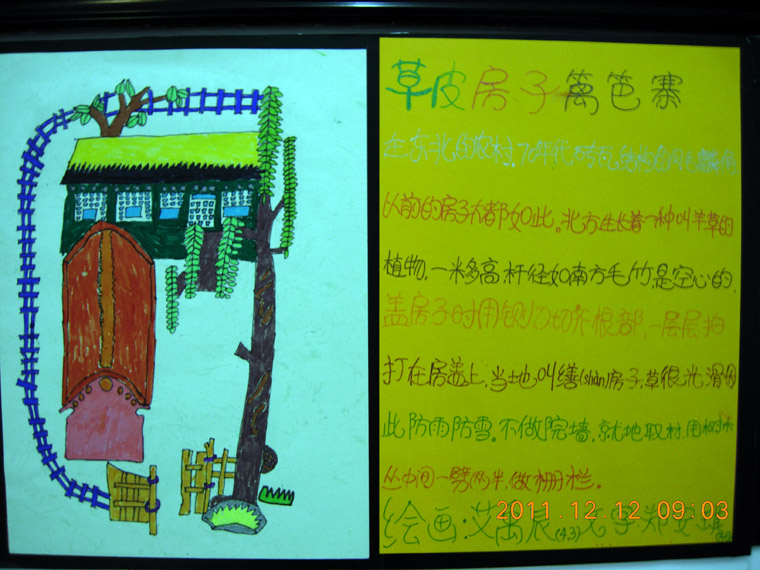 草皮房子篱笆寨
在东北的农村,70年代
以前的房子大都如此。北方生长着一种叫羊草的
植物,一米多高,杆径如南方毛竹,是空心的,
盖房子时用铡刀切齐根部,一层层拍
打在房盖上,当地叫缮(shàn)房子,草很光滑因
此防雨防雪。不做院墙,就地取材,用树木
从中间一劈两半,做栅栏。
绘画:艾禹辰(43)文字郑安
2011.12.12 09:03